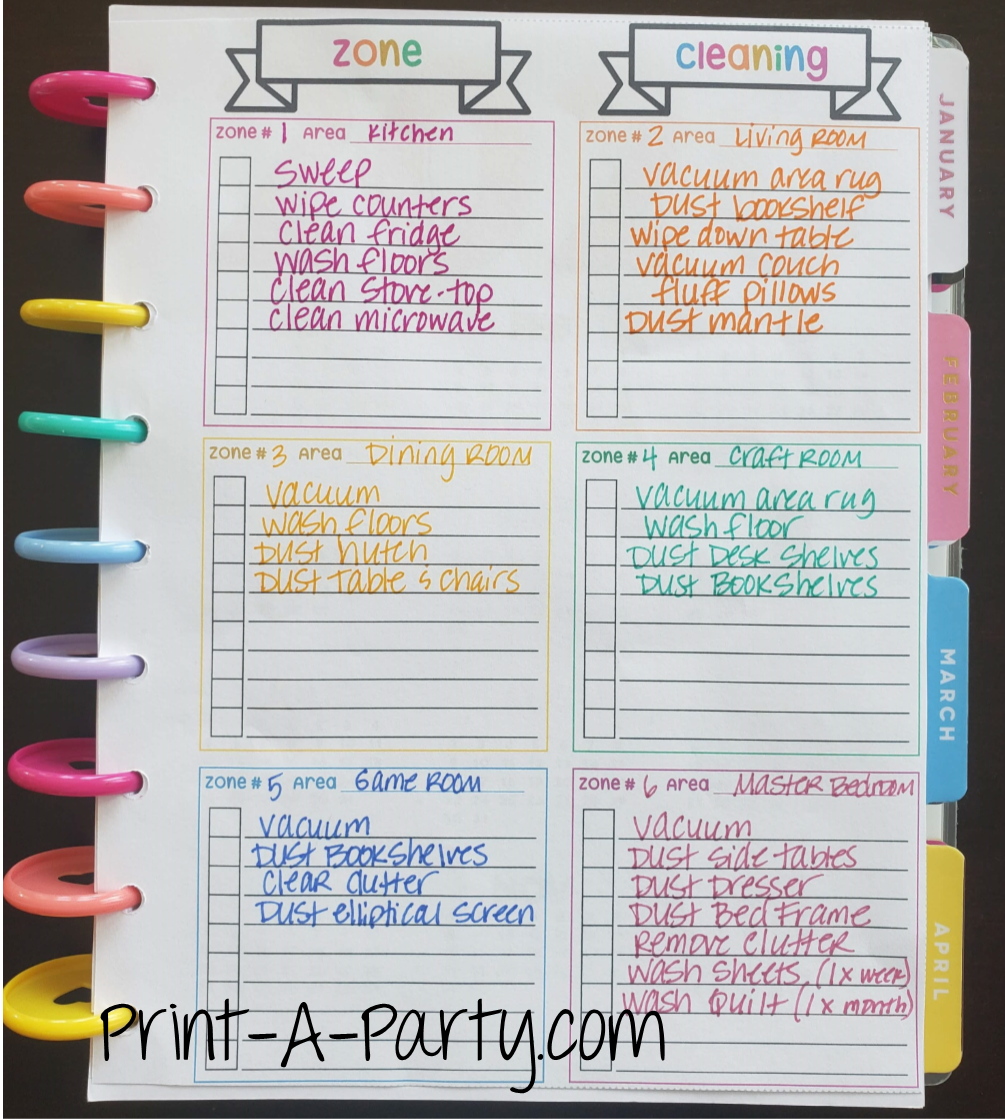 zone cleaning
zone # 1 Area Kitchen
sweep
wipe counters
clean fridge
wash floors
clean stove-top
clean microwave
zone # 2 Area Living Room
vacuum area rug
Dust bookshelf
wipe down table
vacuum couch
fluff pillows
Dust mantle
zone # 3 Area Dining Room
vacuum
wash floors
Dust hutch
Dust Table & chairs
zone # 4 Area Craft Room
vacuum area rug
wash floor
Dust Desk shelves
Dust Bookshelves
zone # 5 Area Game Room
vacuum
Dust Bookshelves
clear clutter
Dust elliptical screen
zone # 6 Area Master Bedroom
vacuum
Dust side tables
Dust Dresser
Dust Bed Frame
Remove clutter
wash sheets (1x week)
wash Quilt (1x month)
JANUARY
FEBRUARY
MARCH
APRIL
Print-A-Party.com